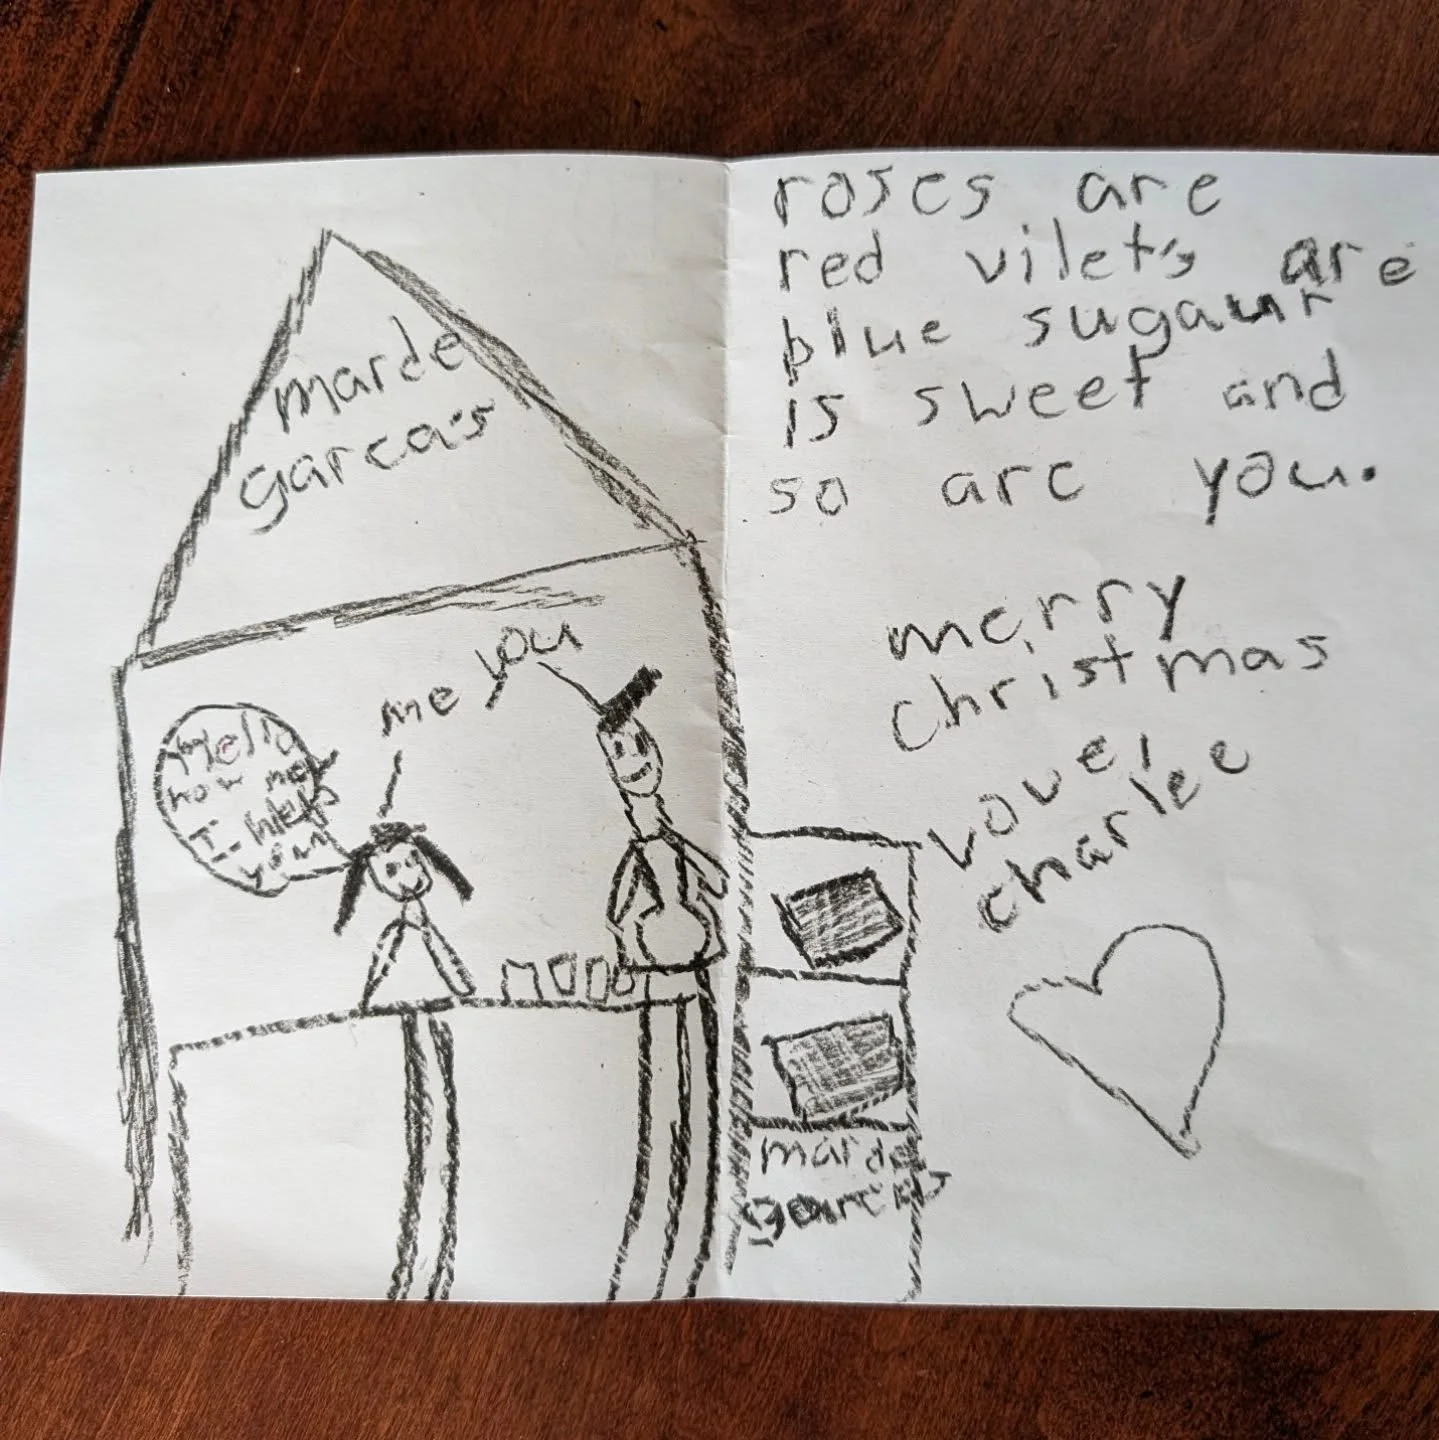 marde
garcas
me you
Hello
how may
I help
you
roses are
red vilets are
blue sugaur
is sweet and
so are you.
merry
christmas
Love,
charlee
marde
garcas